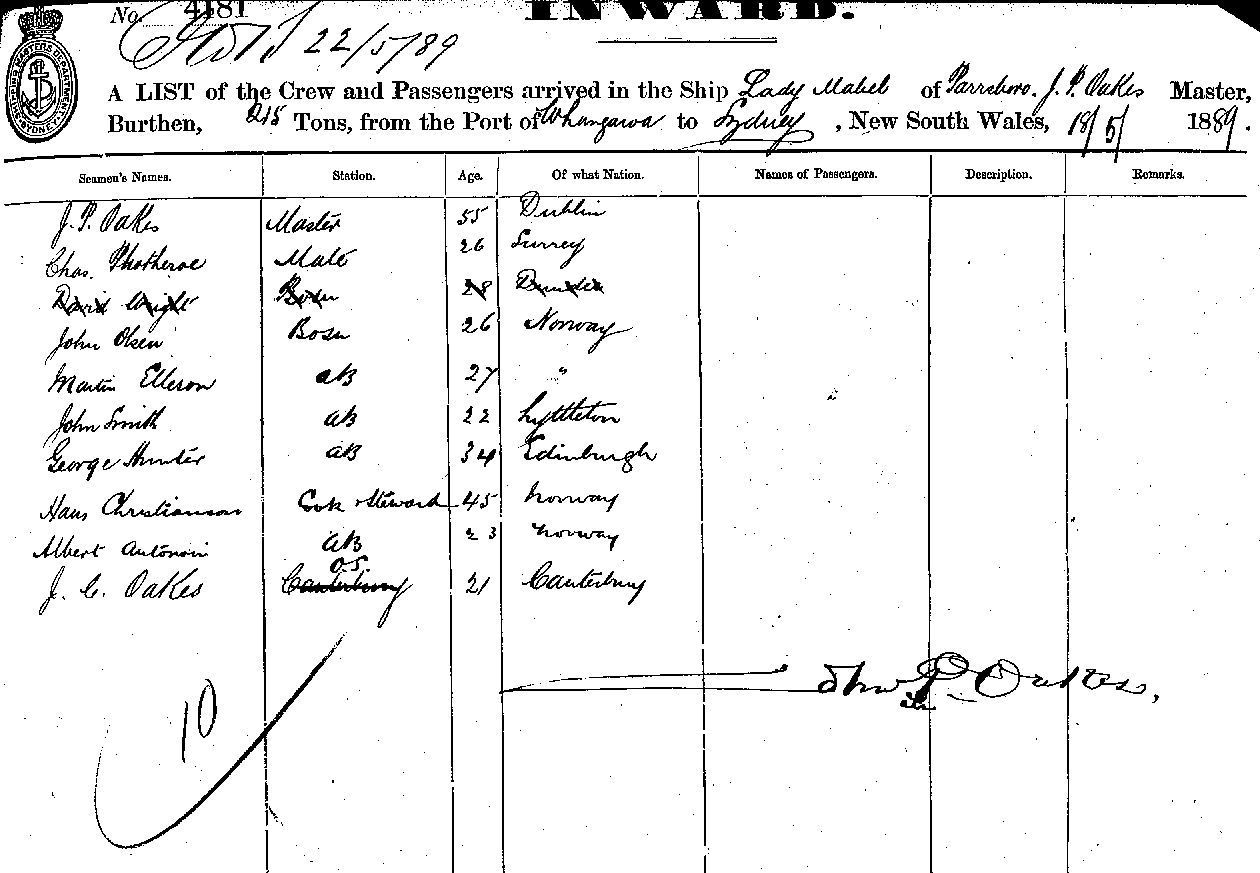 No. 4181 INWARD.
22/5/89
A LIST of the Crew and Passengers arrived in the Ship Lady Mabel of Parrsboro. J. P. Oakes Master,
Burthen, 215 Tons, from the Port of Whangaroa to Sydney, New South Wales, 18/5/ 1889.
Seamen's Names. Station. Age. Of what Nation. Names of Passengers. Description. Remarks.
J. P. Oakes Master 55 Dublin
Chas. Mate 26 Surrey
David Wright Bosn 28 Dundee
John Olsen Bosn 26 Norway
Martin Elleson AB 27 "
John Smith AB 22 Lyttleton
George Hunter AB 34 Edinburgh
Hans Christianson Cook & Steward 45 Norway
Albert AB 23 Norway
O.S.
J. C. Oakes Canterbury 21 Canterbury
Jno P. Oakes,
10